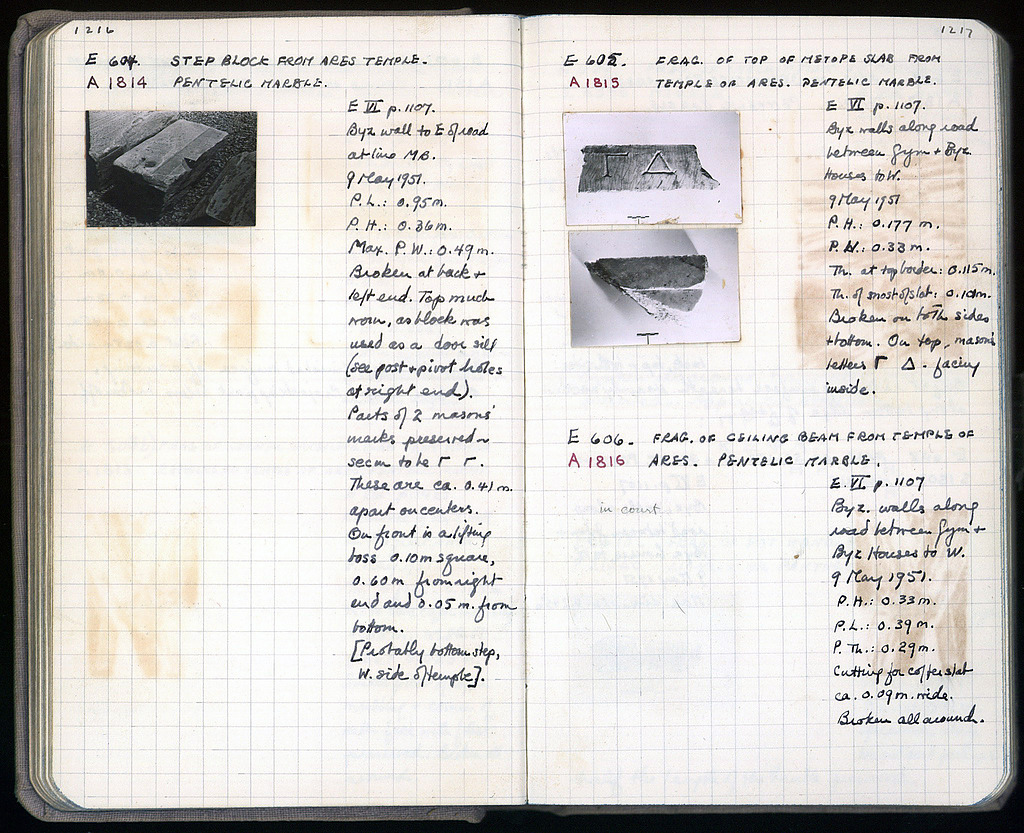 1216
E 604. STEP BLOCK FROM ARES TEMPLE.
A 1814 PENTELIC MARBLE.
E VI p. 1107.
Byz wall to E of road
at line MB.
9 May 1951.
P. L.: 0.95 m.
P. H.: 0.36 m.
Max. P. W.: 0.49 m.
Broken at back +
left end. Top much
worn, as block was
used as a door sill
(see post + pivot holes
at right end).
Parts of 2 masons'
marks preserved –
seem to be Γ Γ.
These are ca. 0.41 m.
apart on centers.
On front is a lifting
boss 0.10 m square,
0.60 m from right
end and 0.05 m. from
bottom.
[Probably bottom step,
W. side of temple].
1217
E 605. FRAG. OF TOP OF METOPE SLAB FROM
A 1815 TEMPLE OF ARES. PENTELIC MARBLE.
Γ Δ
E VI p. 1107.
Byz walls along road
between Gym + Byz
Houses to W.
9 May 1951
P. H.: 0.177 m.
P. W.: 0.33 m.
Th. at top border: 0.115 m.
Th. of most of slab: 0.101 m.
Broken on both sides
+ bottom. On top, mason's
letters Γ Δ. facing
inside.
E 606. FRAG. OF CEILING BEAM FROM TEMPLE OF
A 1816 ARES. PENTELIC MARBLE.
in court
E. VI p. 1107
Byz. walls along
road between Gym +
Byz Houses to W.
9 May 1951.
P. H.: 0.33 m.
P. L.: 0.39 m.
P. Th.: 0.29 m.
Cutting for coffer slab
ca. 0.09 m. wide.
Broken all around.